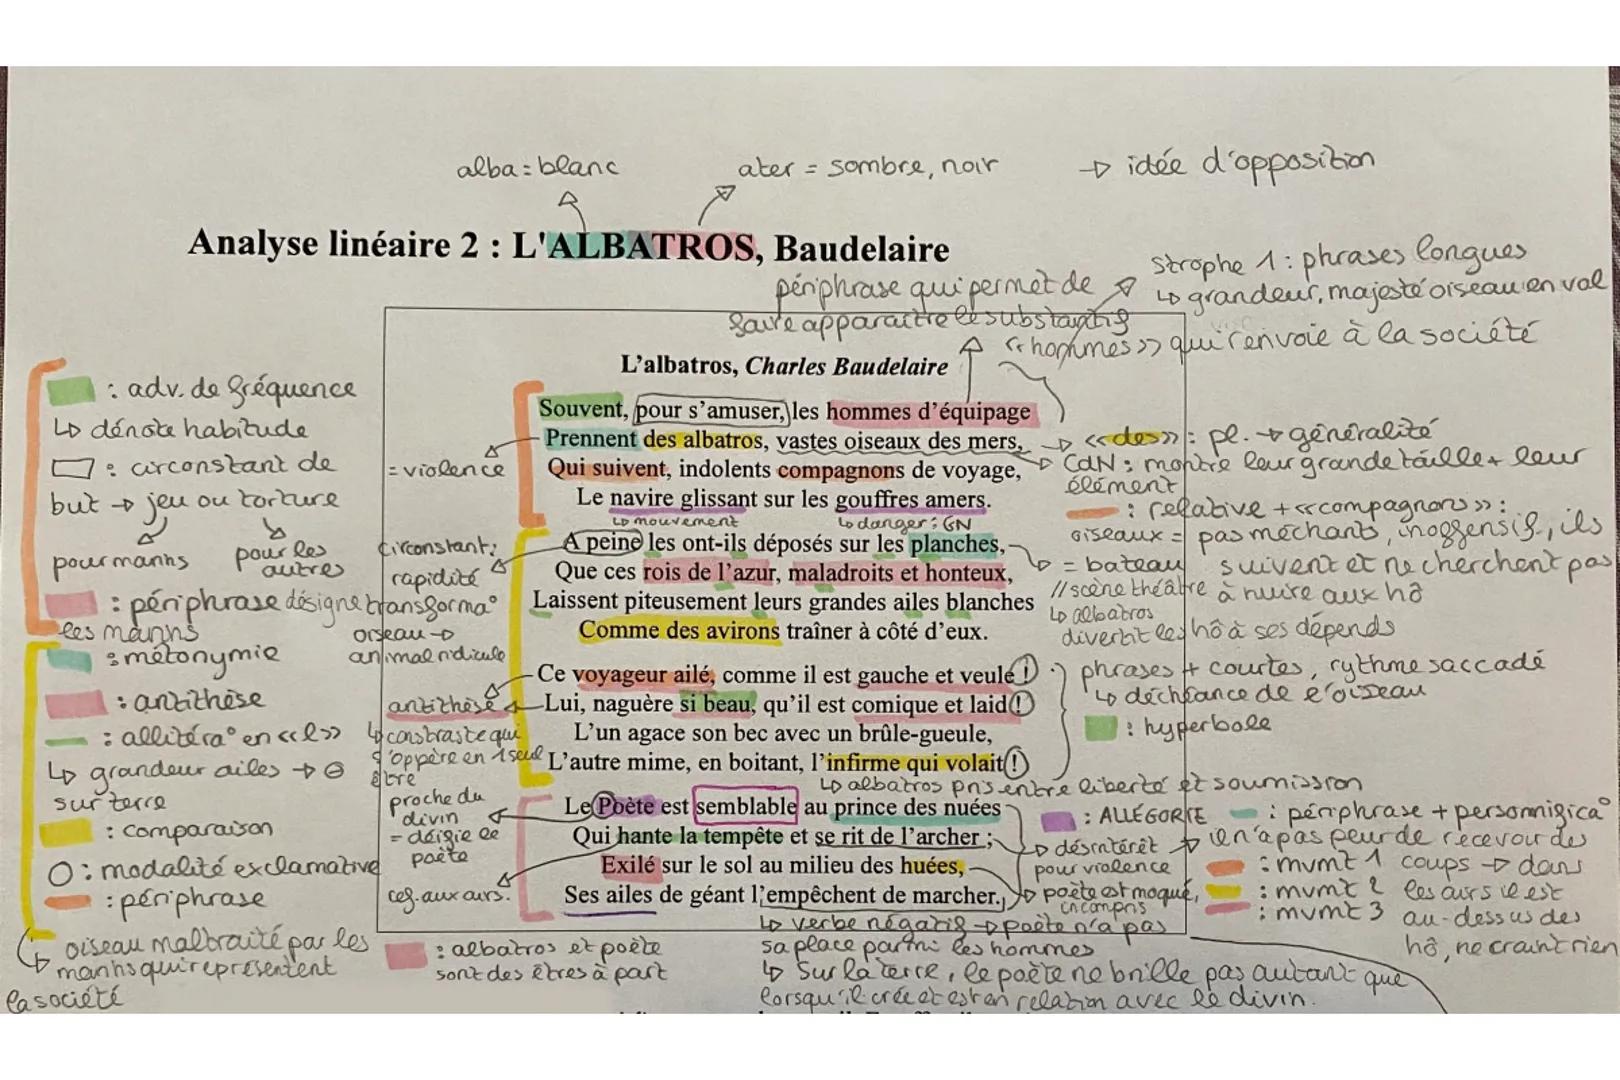 alba = blanc
ater = sombre, noir
→ idée d'opposition
Analyse linéaire 2 : L'ALBATROS, Baudelaire
Strophe 1 : phrases longues
↳ grandeur, majesté oiseau en vol
périphrase qui permet de
faire apparaître le substantif
«hommes» qui renvoie à la société
L'albatros, Charles Baudelaire
Souvent, pour s'amuser, les hommes d'équipage
Prennent des albatros, vastes oiseaux des mers,
Qui suivent, indolents compagnons de voyage,
Le navire glissant sur les gouffres amers.
↳ mouvement
↳ danger : GN
A peine les ont-ils déposés sur les planches,
Que ces rois de l'azur, maladroits et honteux,
Laissent piteusement leurs grandes ailes blanches
Comme des avirons traîner à côté d'eux.
Ce voyageur ailé, comme il est gauche et veule !
Lui, naguère si beau, qu'il est comique et laid !
L'un agace son bec avec un brûle-gueule,
L'autre mime, en boitant, l'infirme qui volait !
↳ albatros pris entre liberté et soumission
Le Poète est semblable au prince des nuées
Qui hante la tempête et se rit de l'archer ;
Exilé sur le sol au milieu des huées,
Ses ailes de géant l'empêchent de marcher.
: adv. de fréquence
↳ dénote habitude
: circonstant de
but → jeu ou torture
pour marins
pour les
autres
: périphrase désigne
les marins
: métonymie
: antithèse
: allitéra° en «l»
↳ grandeur ailes → ⊖
sur terre
: comparaison
O : modalité exclamative
: périphrase
↳ oiseau maltraité par les
marins qui représentent
la société
= violence
circonstant :
rapidité
transforma°
oiseau →
animal ridicule
antithèse
↳ constraste qui
s'oppère en 1 seul
être
proche du
divin
= déifie le
poète
cf. aux airs.
: albatros et poète
sont des êtres à part
«des» : pl. → généralité
CdN : montre leur grande taille + leur
élément
: relative + «compagnons» :
oiseaux = pas méchants, inoffensifs, ils
suivent et ne cherchent pas
à nuire aux hô
= bateau
// scène théâtre
↳ albatros
divertit les hô à ses dépends
phrases + courtes, rythme saccadé
↳ déchéance de l'oiseau
: hyperbole
: ALLÉGORIE
: périphrase + personnifica°
il n'a pas peur de recevoir des
coups → dans
les airs il est
au-dessus des
hô, ne craint rien
désintérêt
pour violence
poète est moqué,
incompris
: mvmt 1
: mvmt 2
: mvmt 3
↳ verbe négatif → poète n'a pas
sa place parmi les hommes
↳ Sur la terre, le poète ne brille pas autant que
lorsqu'il crée et est en relation avec le divin.